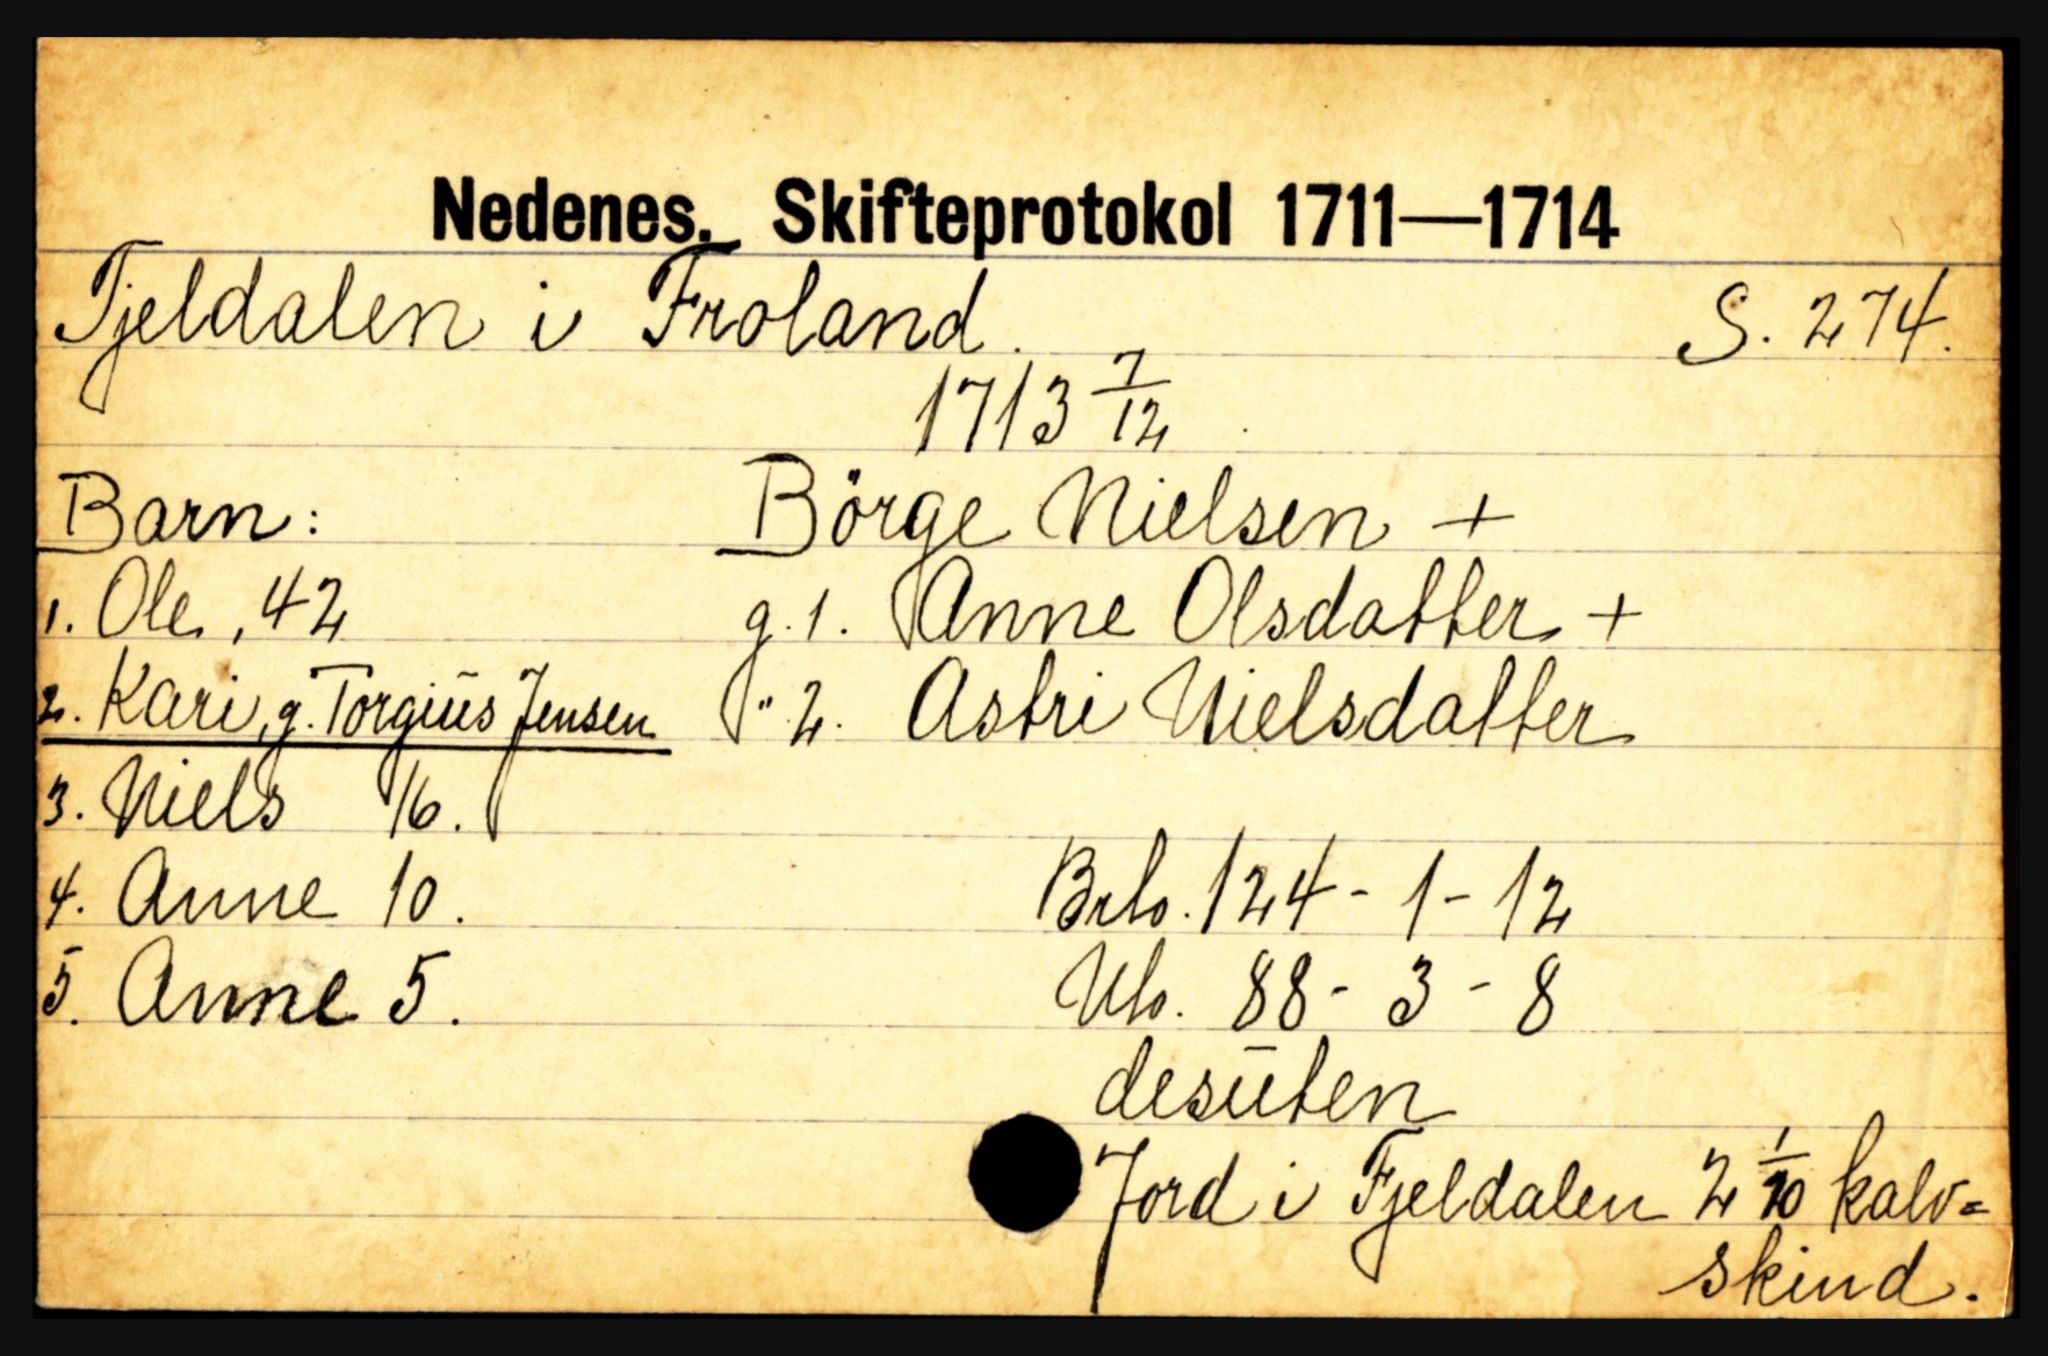 Nedenes. Skifteprotokol 1711—1714
Fjeldalen i Froland. S. 274.
1713 7/12.
Barn: Börge Nielsen +
1. Ole, 42 g. 1. Anne Olsdatter +
2. Kari, g. Torgiūs Jensen " 2. Astri Nielsdatter
3. Niels 16.
4. Anne 10. Brto. 124 - 1 - 12
5. Anne 5. Nto. 88 - 3 - 8
desūten
Jord i Fjeldalen 2 1/20 kalv=
skind.